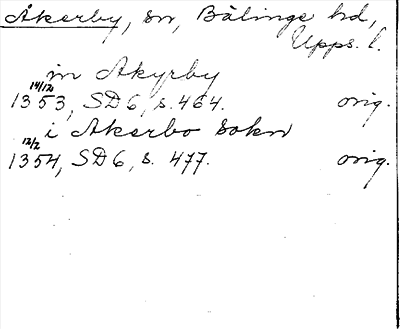 Åkerby, sn, Bälinge hd,
Upps. l.
in Akyrby
14/12 1353, SD 6, s. 464. orig.
i Akerbo sokn
12/2 1354, SD 6, s. 477. orig.